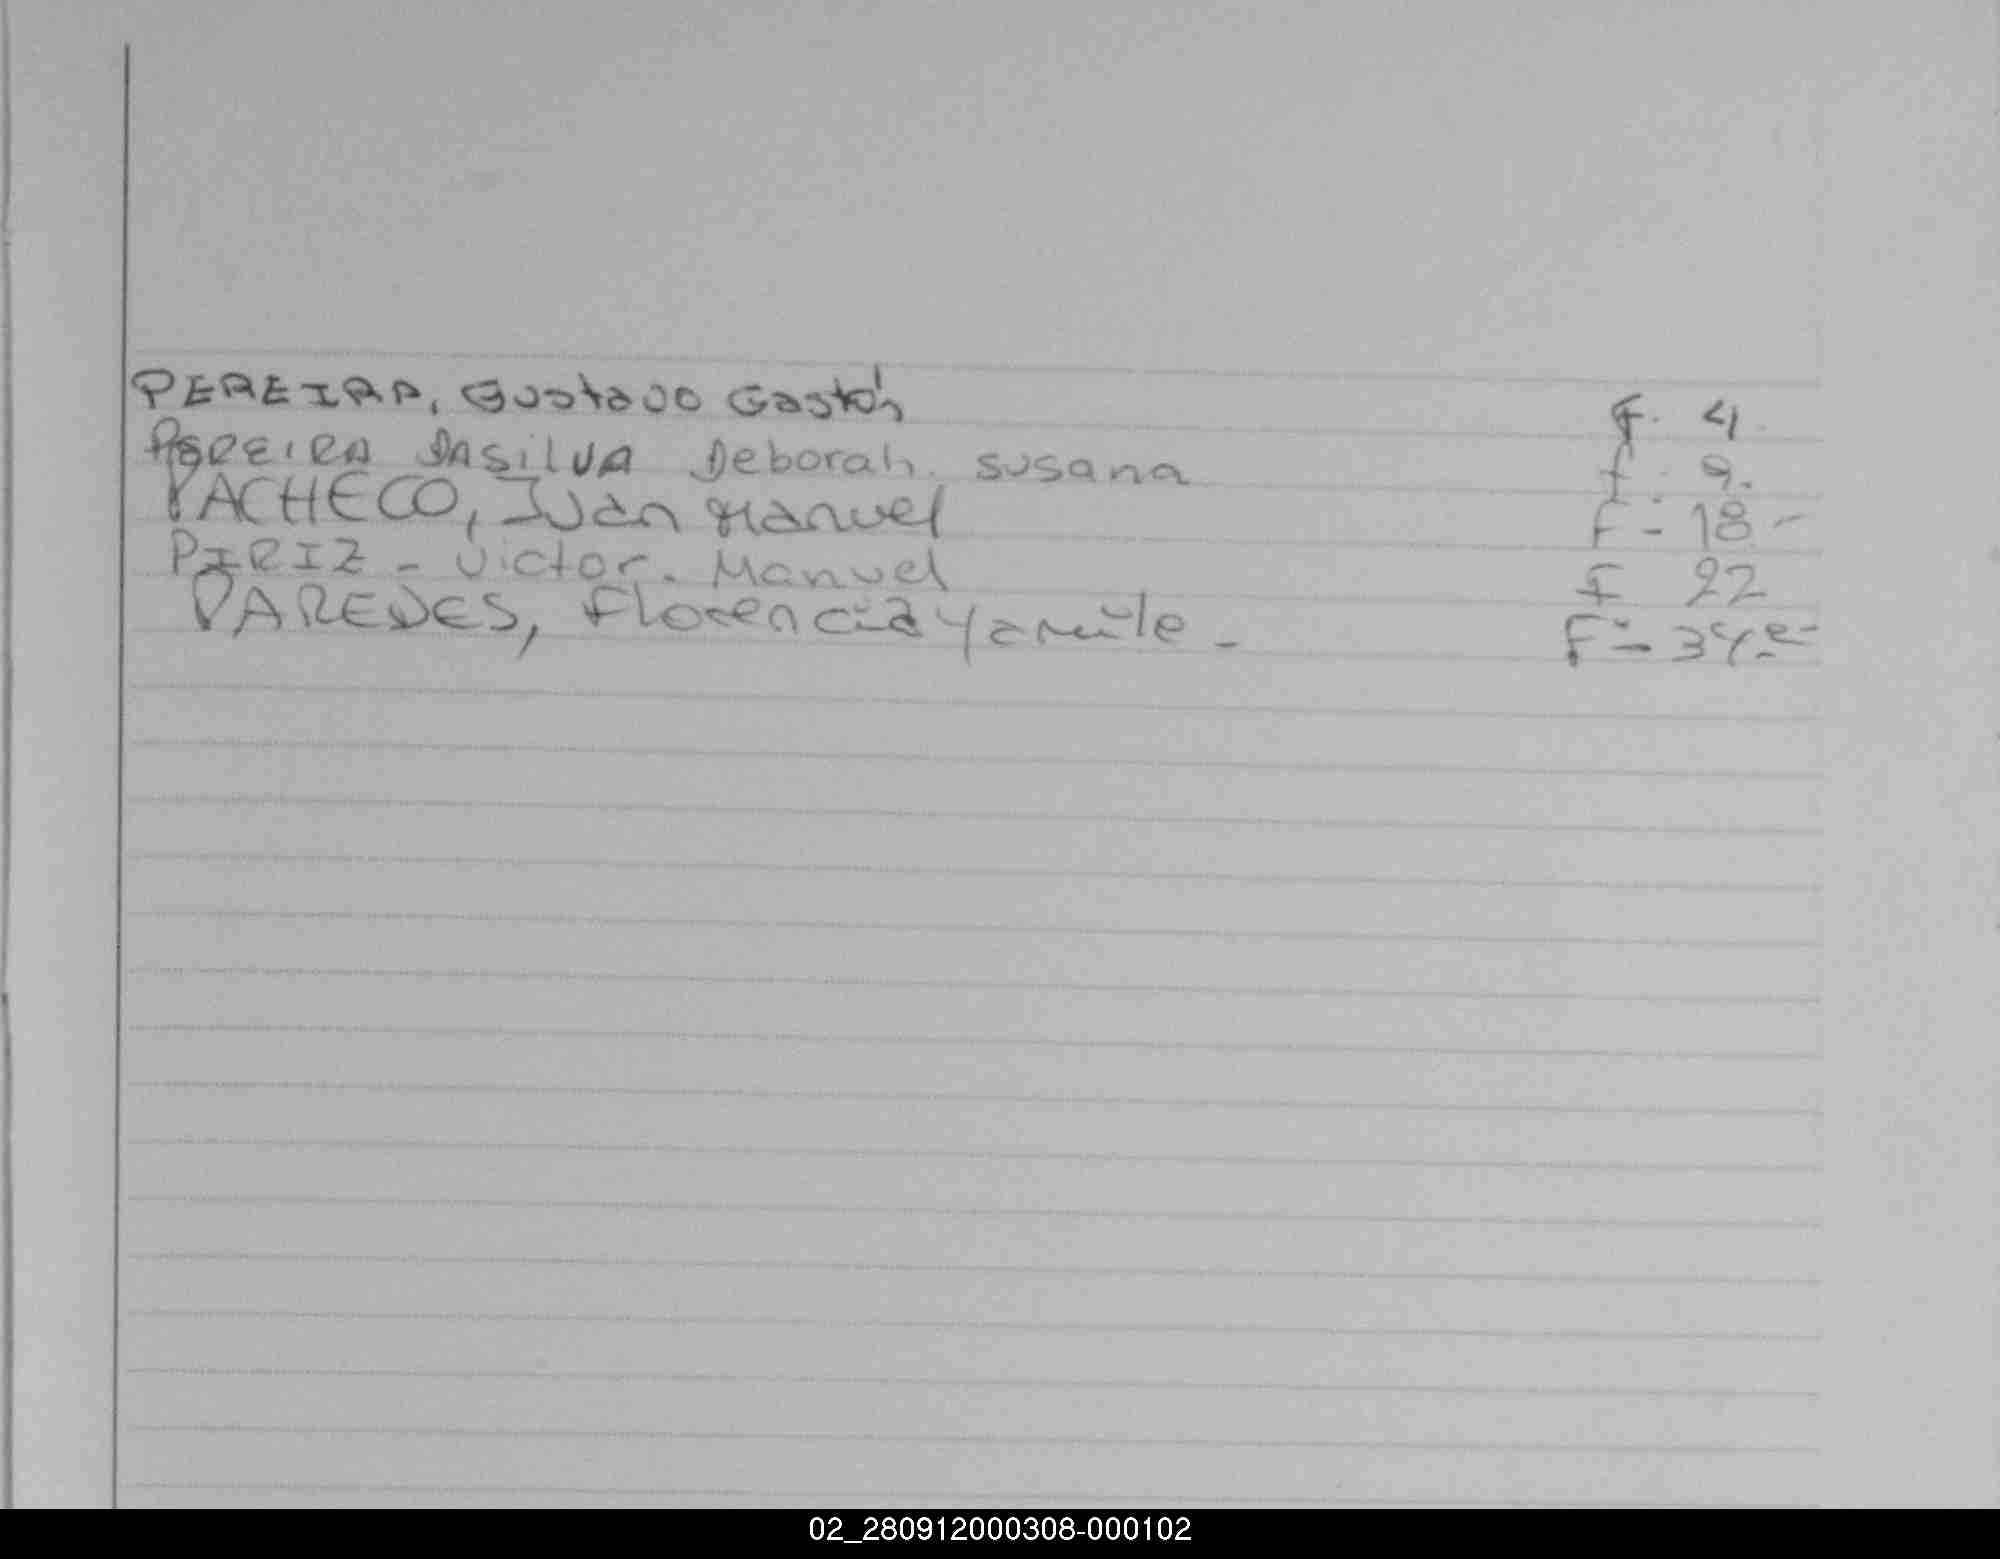 PEREIRA, Gustavo Gastón F. 4.
PEREIRA DASILVA Deborah. Susana f. 9.
PACHECO, Iván Manuel F - 18 -
PIRIZ - Victor. Manuel F 22
PAREDES, Florencia Yamile - F - 34
02_280912000308-000102